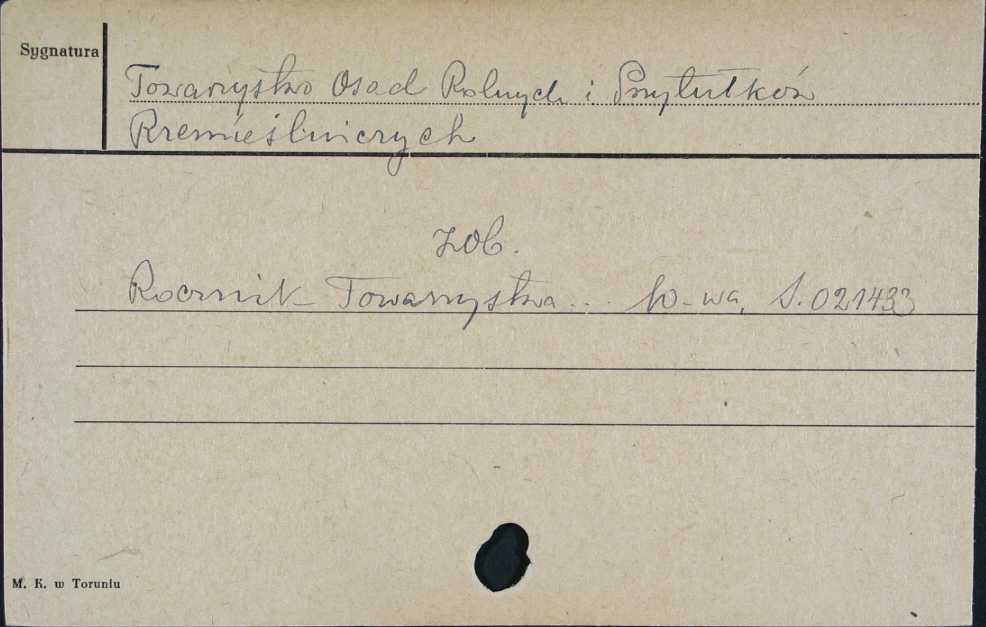 Sygnatura
Towarzystwo Osad Rolnych i Przytułków
Rzemieślniczych
zob.
Rocznik Towarzystwa... W-wa, S. 021433
M. K. w Toruniu